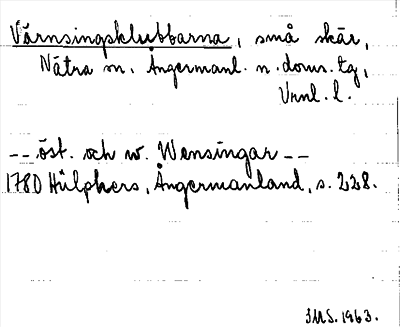 Värnsingsklubbarna, små skär,
Nätra sn. Ångermanl. n. doms. tg,
Vrnl. l.
-- öst. och w. Wensingar --
1780 Hülphers, Ångermanland, s. 228.
IMS. 1963.